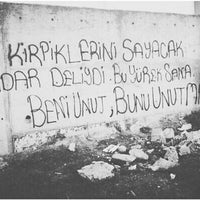 KİRPİKLERİNİ SAYACAK
DAR DELİYDİ. BU YÜREK SANA.
BENİ UNUT, BUNU UNUTM